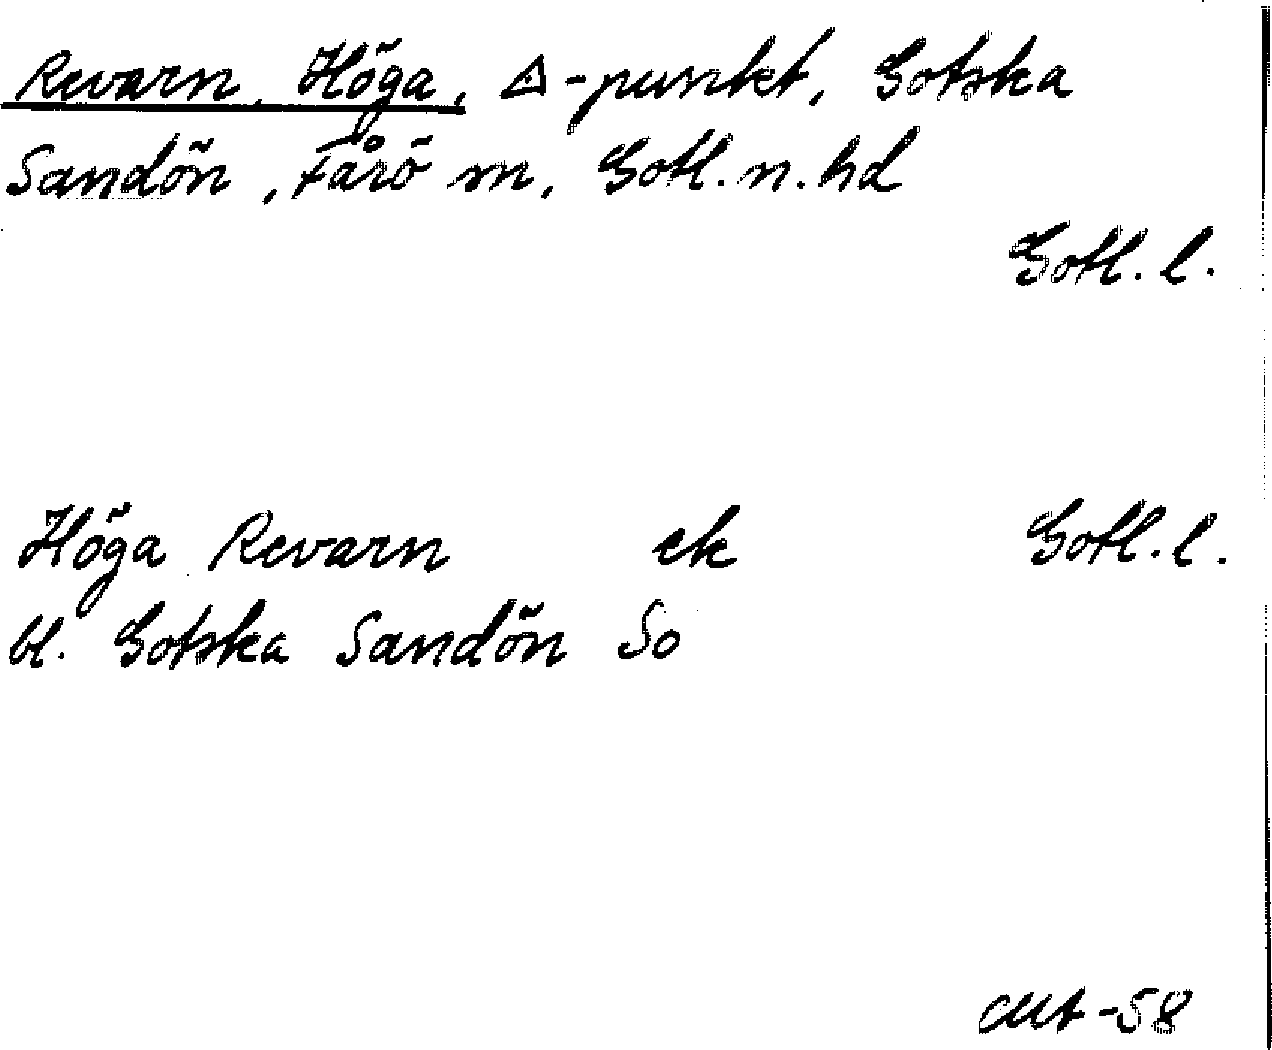 Revarn, Höga, △-punkt, Gotska
Sandön, Fårö sn, Gotl. n. hd
Gotl. l.
Höga Revarn ek Gotl. l.
bl. Gotska Sandön So
-58